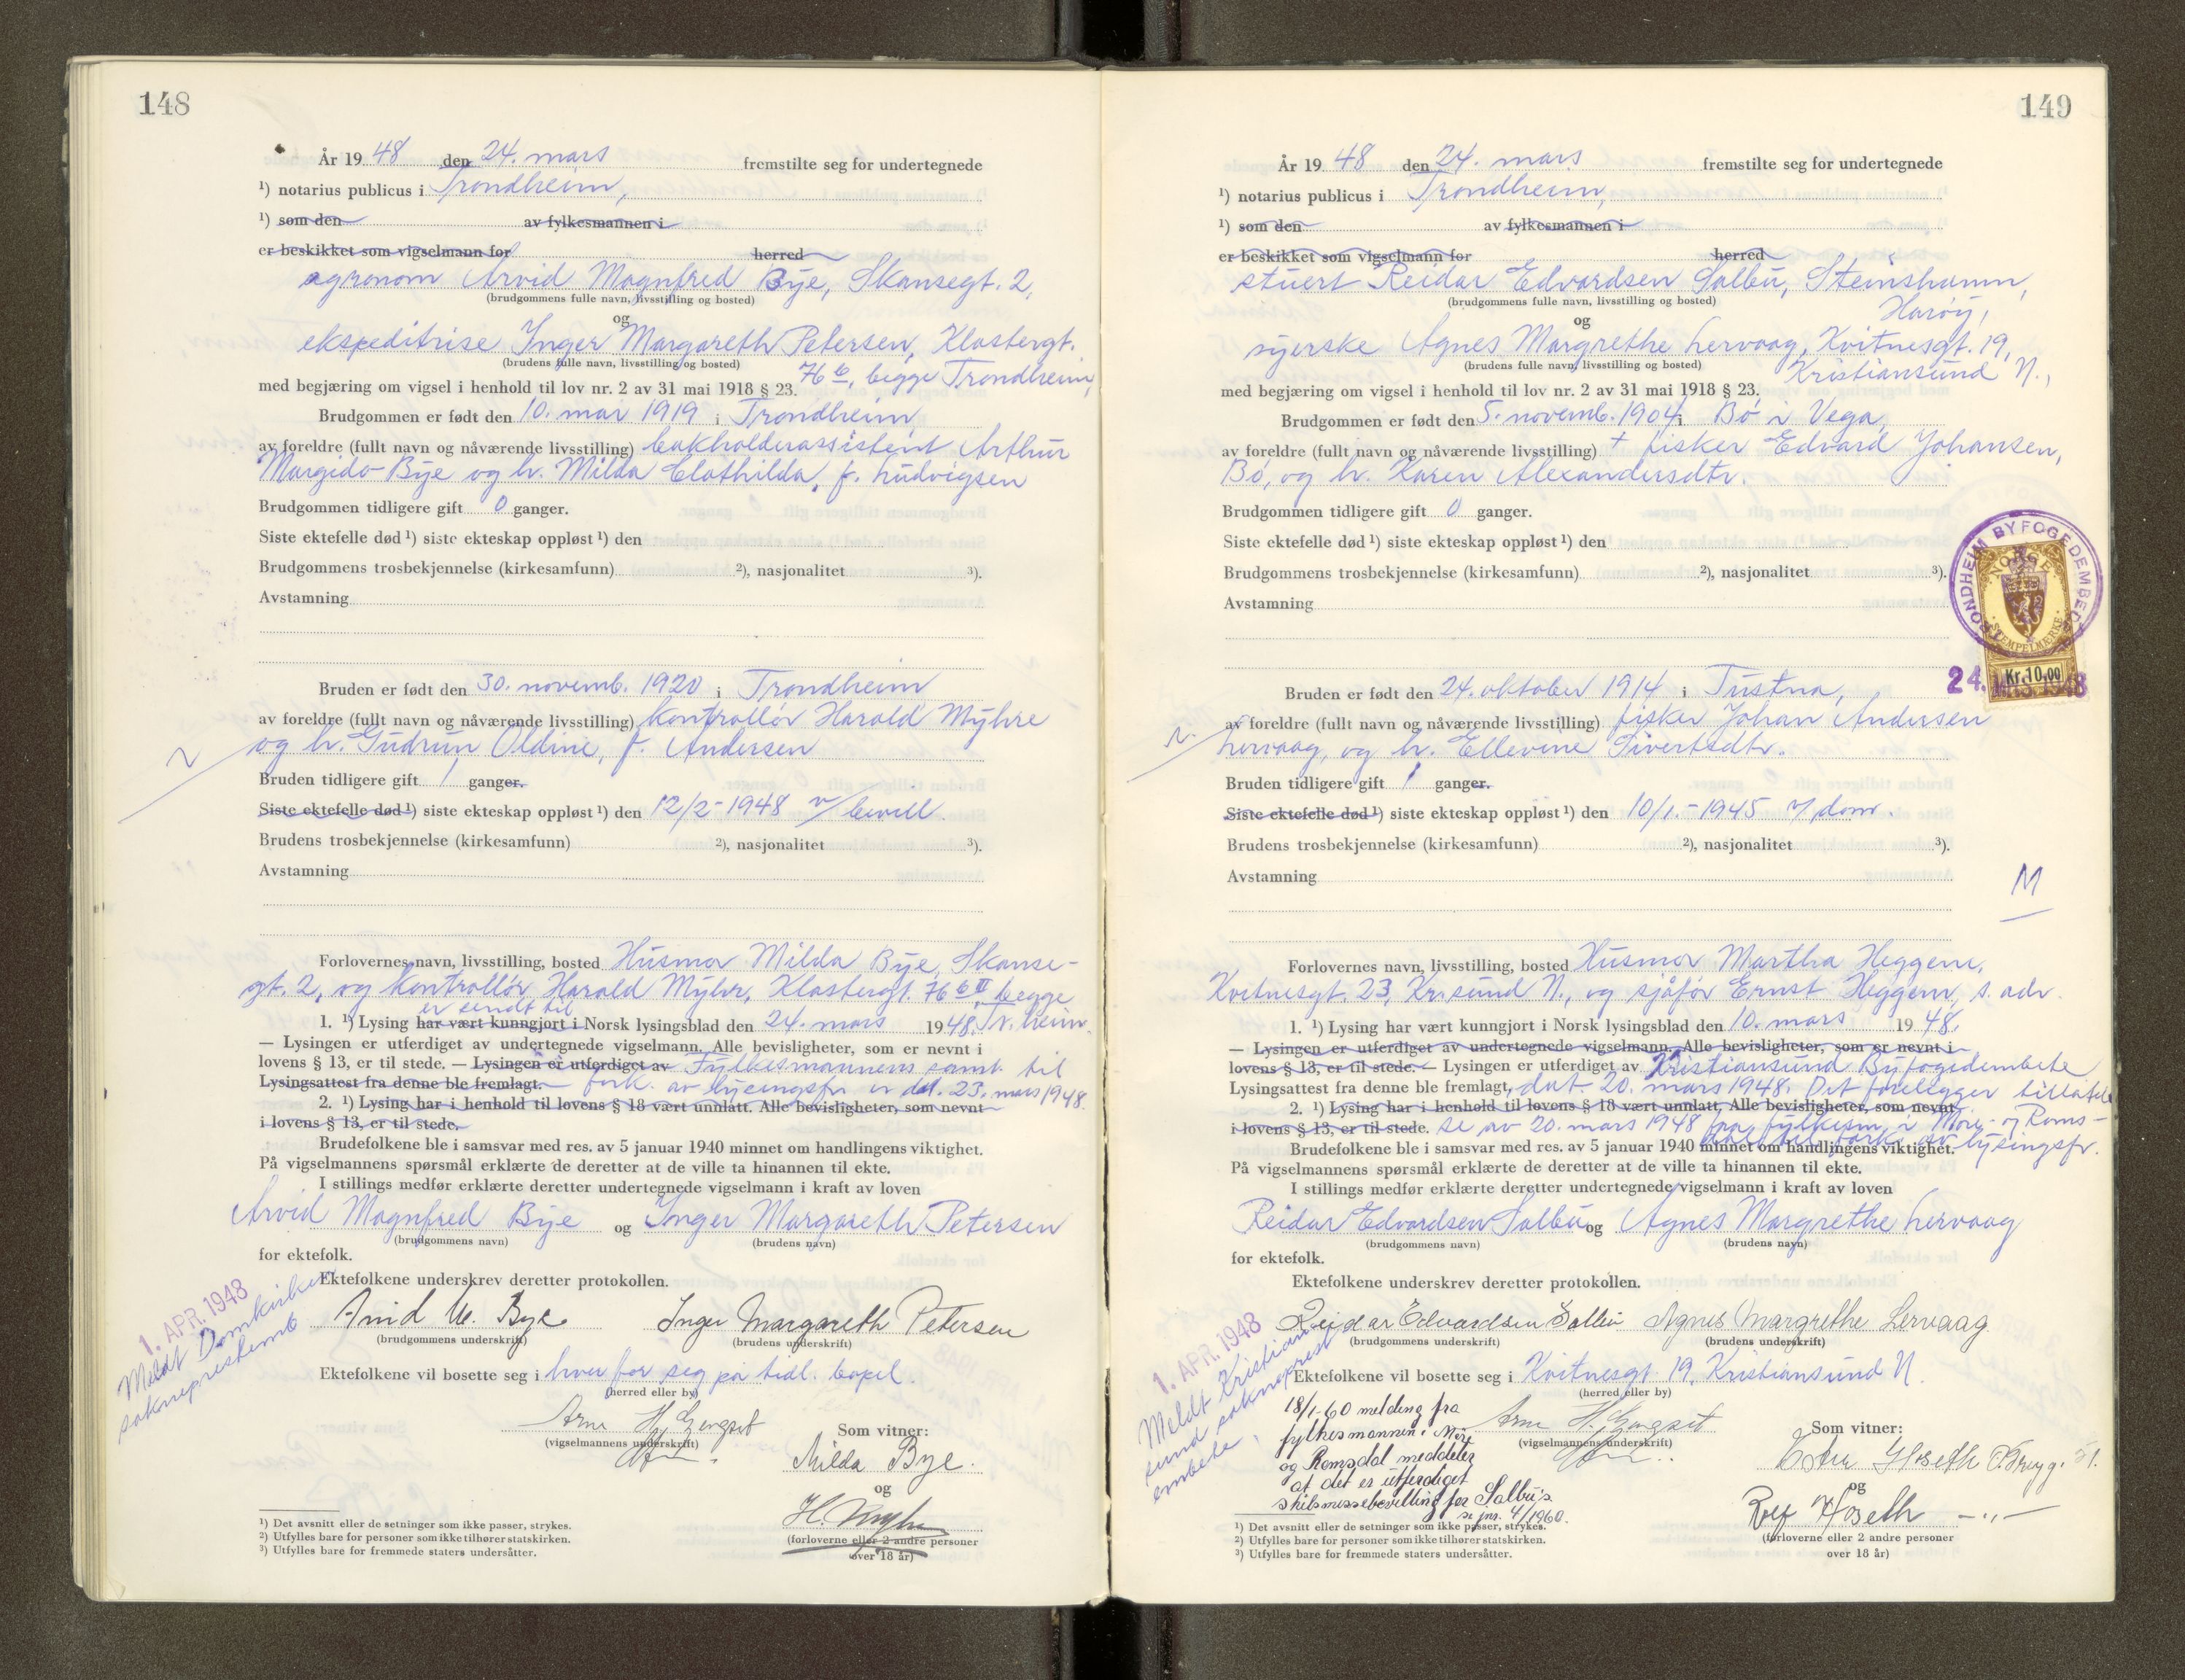 148
År 1948 den 24. mars fremstilte seg for undertegnede
¹) notarius publicus i Trondheim,
¹) som den av fylkesmannen i
er beskikket som vigselmann for herred
agronom Arvid Magnfred Bye, Skansegt. 2,
(brudgommens fulle navn, livsstilling og bosted)
og
ekspeditrise Inger Margareth Petersen, Klostergt.
(brudens fulle navn, livsstilling og bosted)
76 b, begge Trondheim,
med begjæring om vigsel i henhold til lov nr. 2 av 31 mai 1918 § 23.
Brudgommen er født den 10. mai 1919 i Trondheim
av foreldre (fullt navn og nåværende livsstilling) bokholderassistent Arthur
Margido Bye og h. Milda Clothilda, f. Ludvigsen
Brudgommen tidligere gift 0 ganger.
Siste ektefelle død ¹) siste ekteskap oppløst ¹) den
Brudgommens trosbekjennelse (kirkesamfunn) ²), nasjonalitet ³).
Avstamning
Bruden er født den 30. novemb. 1920 i Trondheim
av foreldre (fullt navn og nåværende livsstilling) kontrollør Harald Myhre
og h. Gudrun Oldine, f. Andersen
Bruden tidligere gift 1 ganger.
Siste ektefelle død ¹) siste ekteskap oppløst ¹) den 12/2-1948 v/ bevill.
Brudens trosbekjennelse (kirkesamfunn) ²), nasjonalitet ³).
Avstamning
Forlovernes navn, livsstilling, bosted Husmor Milda Bye, Skanse-
gt. 2, og kontrollør Harald Myhr, Klostergt. 76 b II begge
er sendt til
1. ¹) Lysing har vært kunngjort i Norsk lysingsblad den 24. mars 1948. Tr.heim.
— Lysingen er utferdiget av undertegnede vigselmann. Alle bevisligheter, som er nevnt i
lovens § 13, er til stede. — Lysingen er utferdiget av Fylkesmannens samt. til
Lysingsattest fra denne ble fremlagt. fork. av lysingsfr. er dat. 23. mars 1948.
2. ¹) Lysing har i henhold til lovens § 18 vært unnlatt. Alle bevisligheter, som nevnt
i lovens § 13, er til stede.
Brudefolkene ble i samsvar med res. av 5 januar 1940 minnet om handlingens viktighet.
På vigselmannens spørsmål erklærte de deretter at de ville ta hinannen til ekte.
I stillings medfør erklærte deretter undertegnede vigselmann i kraft av loven
Arvid Magnfred Bye og Inger Margareth Petersen
(brudgommens navn) (brudens navn)
for ektefolk.
Ektefolkene underskrev deretter protokollen.
1. APR. 1948
Meldt Domkirken
sokneprestemb
Arvid M. Bye Inger Margareth Petersen
(brudgommens underskrift) (brudens underskrift)
Ektefolkene vil bosette seg i hver for seg på tidl. bopel.
(herred eller by)
(vigselmannens underskrift)
Som vitner:
Milda Bye.
og
H. Myhre
(forloverne eller 2 andre personer
over 18 år)
¹) Det avsnitt eller de setninger som ikke passer, strykes.
²) Utfylles bare for personer som ikke tilhører statskirken.
³) Utfylles bare for fremmede staters undersåtter.
149
År 1948 den 24. mars fremstilte seg for undertegnede
¹) notarius publicus i Trondheim,
¹) som den av fylkesmannen i
er beskikket som vigselmann for herred
stuert Reidar Edvardsen Salbu, Steinshamn,
(brudgommens fulle navn, livsstilling og bosted)
Harøy,
og
syerske Agnes Margrethe Lervaag, Kvitnesgt. 19,
(brudens fulle navn, livsstilling og bosted)
Kristiansund N.,
med begjæring om vigsel i henhold til lov nr. 2 av 31 mai 1918 § 23.
Brudgommen er født den 5. novemb. 1904 i Bø i Vega,
av foreldre (fullt navn og nåværende livsstilling) + fisker Edvard Johansen,
Bø, og h. Karen Alexandersdtr.
Brudgommen tidligere gift 0 ganger.
Siste ektefelle død ¹) siste ekteskap oppløst ¹) den
Brudgommens trosbekjennelse (kirkesamfunn) ²), nasjonalitet ³).
Avstamning
TRONDHEIM BYFOGEDEMBEDE
NORGE
STEMPELMERKE
Kr.10,00
24. MRS. 1948
Bruden er født den 24. oktober 1914 i Tustna,
av foreldre (fullt navn og nåværende livsstilling) fisker Johan Andersen
Lervaag, og h. Ellevine Sivertsdtr.
Bruden tidligere gift 1 ganger.
Siste ektefelle død ¹) siste ekteskap oppløst ¹) den 10/1.-1945 v/ dom.
Brudens trosbekjennelse (kirkesamfunn) ²), nasjonalitet ³).
Avstamning
M
Forlovernes navn, livsstilling, bosted Husmor Martha Heggem,
Kvitnesgt. 23, Kr.sund N., og sjåfør Ernst Heggem, s. adr.
1. ¹) Lysing har vært kunngjort i Norsk lysingsblad den 10. mars 1948.
— Lysingen er utferdiget av undertegnede vigselmann. Alle bevisligheter, som er nevnt i
lovens § 13, er til stede. — Lysingen er utferdiget av Kristiansund Byfogdembete
Lysingsattest fra denne ble fremlagt, dat. 20. mars 1948. Det foreligger tillatel-
2. ¹) Lysing har i henhold til lovens § 18 vært unnlatt. Alle bevisligheter, som nevnt
i lovens § 13, er til stede. se av 20. mars 1948 fra fylkesm. i Møre- og Roms-
dal til fork. av lysingsfr.
Brudefolkene ble i samsvar med res. av 5 januar 1940 minnet om handlingens viktighet.
På vigselmannens spørsmål erklærte de deretter at de ville ta hinannen til ekte.
I stillings medfør erklærte deretter undertegnede vigselmann i kraft av loven
Reidar Edvardsen Salbu og Agnes Margrethe Lervaag
(brudgommens navn) (brudens navn)
for ektefolk.
Ektefolkene underskrev deretter protokollen.
1. APR. 1948
Meldt Kristian-
sund sokneprest
embete.
Reidar Edvardsen Salbu Agnes Margrethe Lervaag
(brudgommens underskrift) (brudens underskrift)
Ektefolkene vil bosette seg i Kvitnesgt 19, Kristiansund N.
(herred eller by)
18/1-60 melding fra
fylkesmannen i Møre
og Romsdal meddeler
at det er utferdiget
skilsmissebevilling for Salbu's.
se jnr. 4/1960.
(vigselmannens underskrift)
Som vitner:
og
Rolf Hoseth —„—
(forloverne eller 2 andre personer
over 18 år)
¹) Det avsnitt eller de setninger som ikke passer, strykes.
²) Utfylles bare for personer som ikke tilhører statskirken.
³) Utfylles bare for fremmede staters undersåtter.